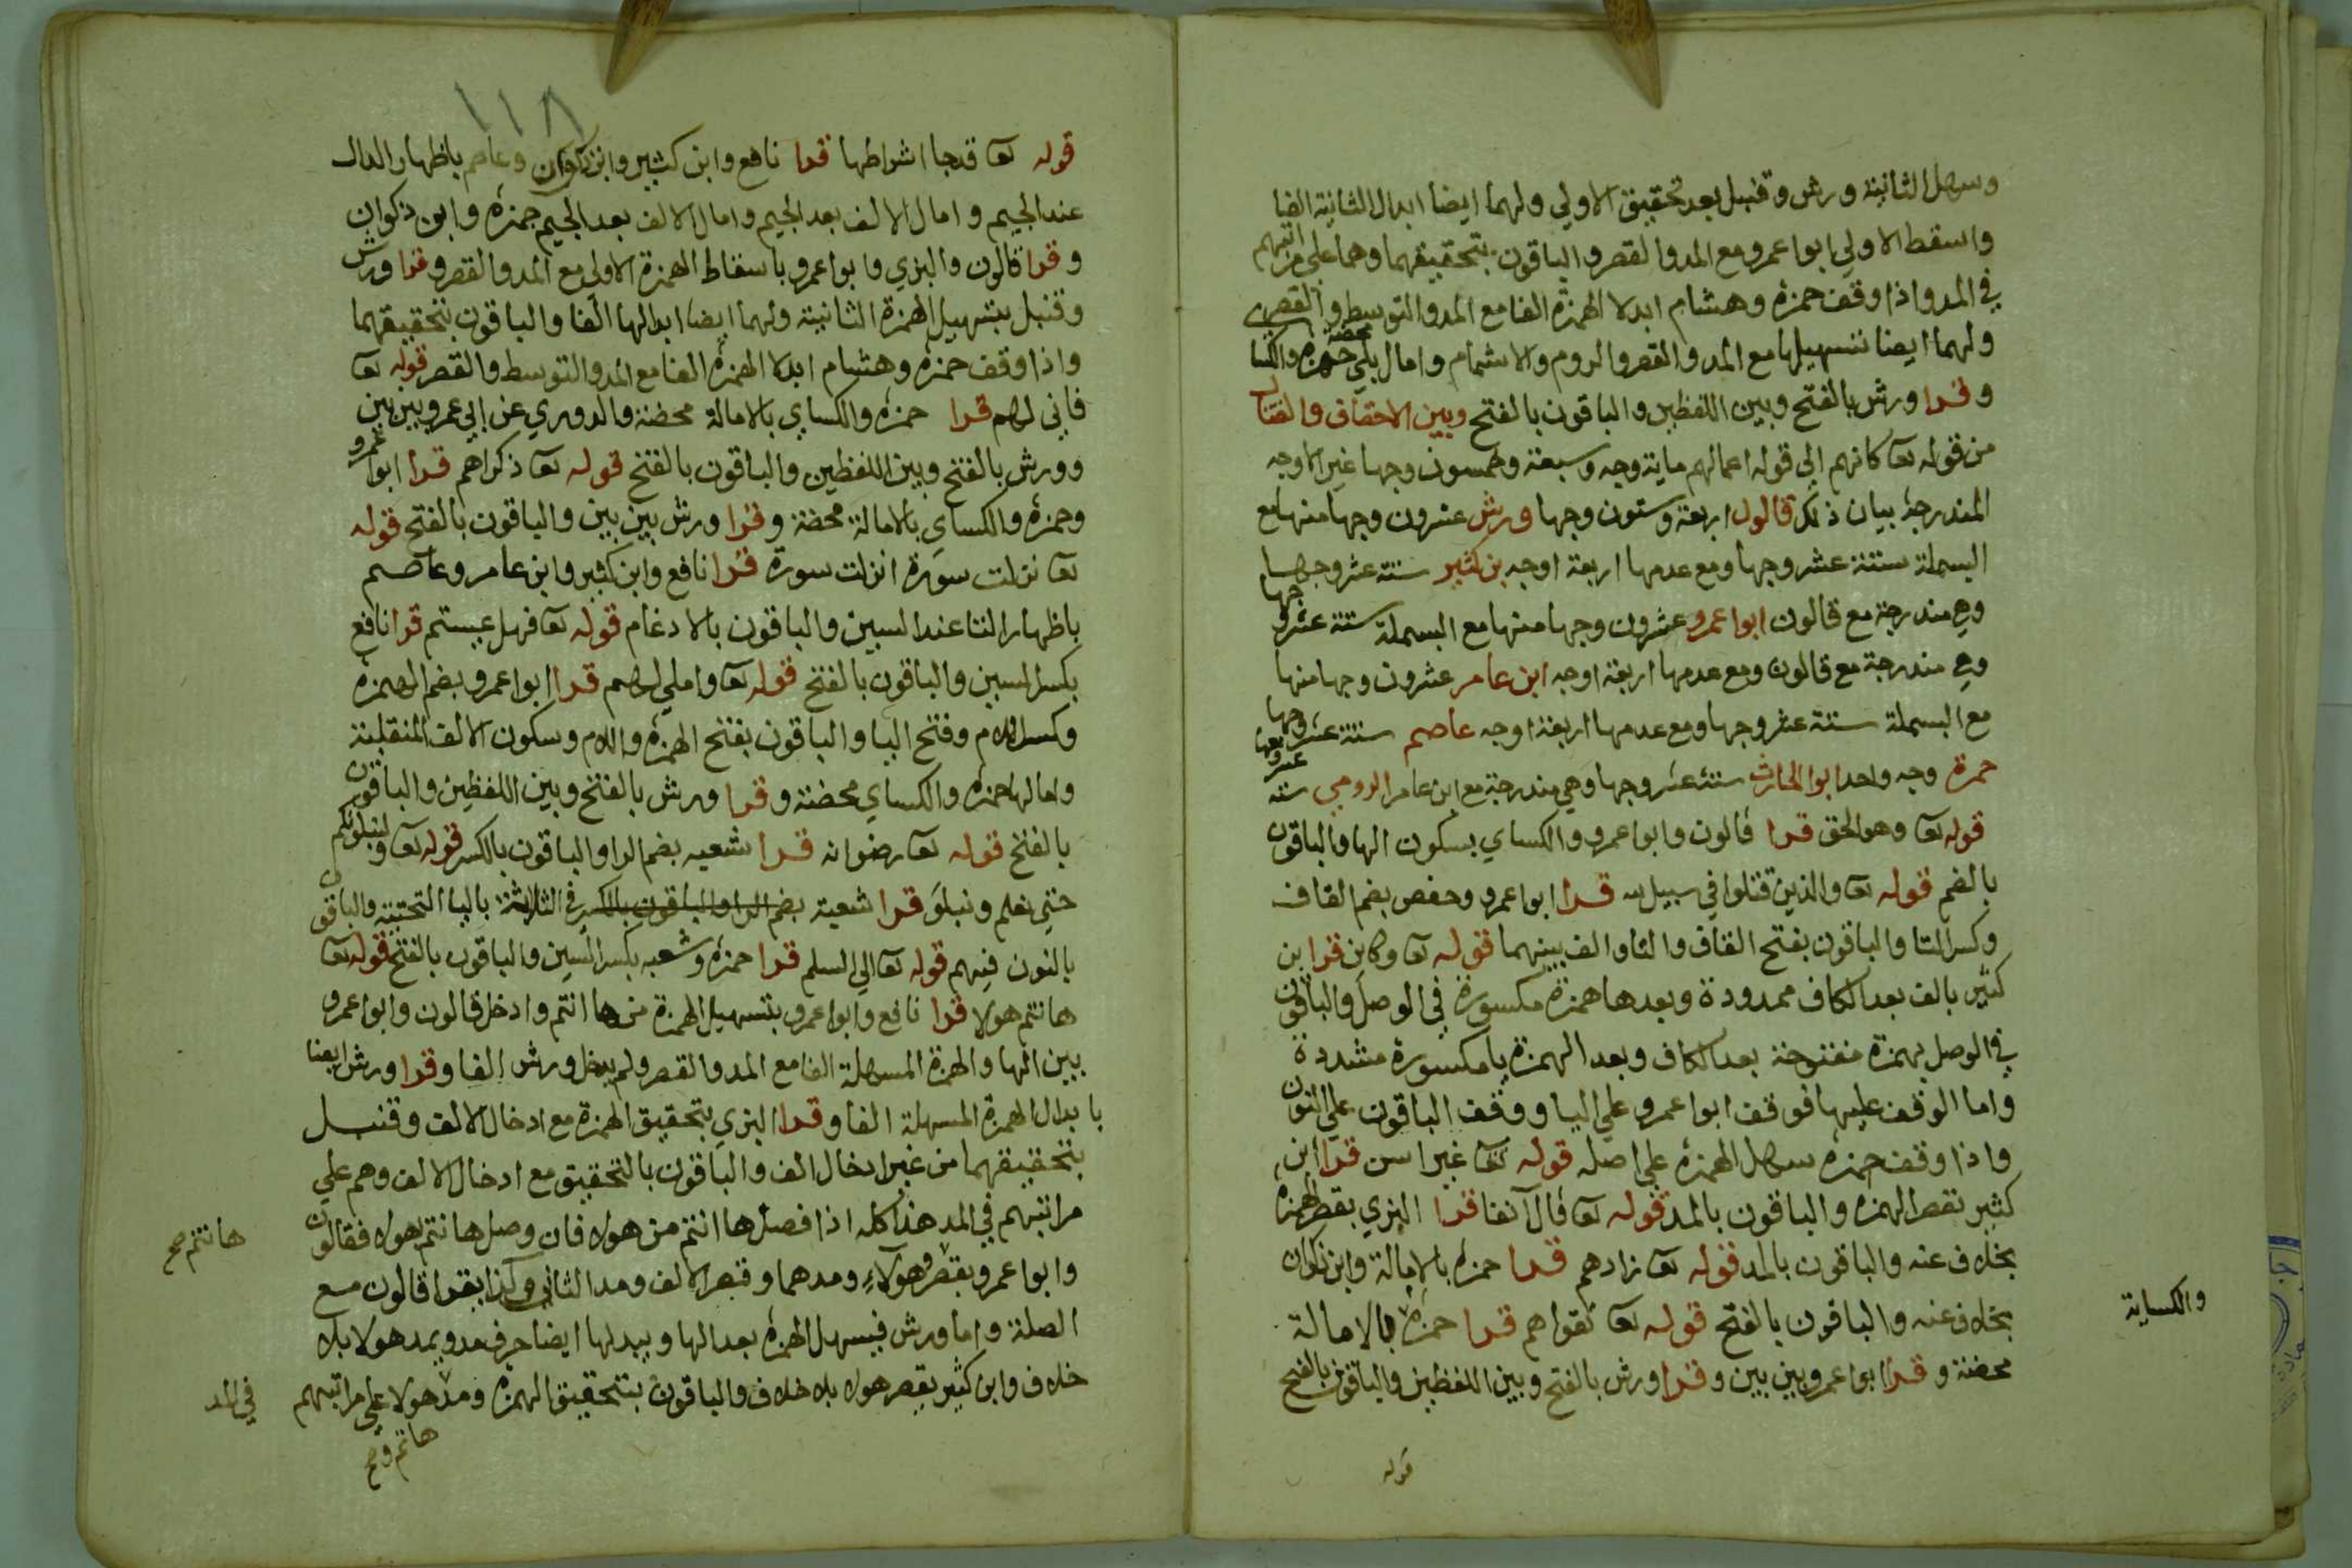 وسهل الثانية ورش وقنبل بعد تحقيق الاولي ولهما ايضا ابدال الثانية الفا
واسقط الاولي ابوا عمرو مع المد والقصر والباقون بتحقيقهما وهما علي مراتبهم
في المد واذا وقف حمزة وهشام ابدلا الهمزة الفا مع المد والتوسط والقصر
ولهما ايضا تسهيلها مع المد والقصر والروم والاشمام وامال بلي حمزة والكسا محضة
وقرا ورش بالفتح وبين اللفظين والباقون بالفتح وبين الاحقاف والقتال
من قوله تعا كانهم الي قوله اعمالهم ماية وجه وسبعة وخمسون وجها غير الاوجه
المندرجة بيان ذلك قالون اربعة وستون وجها ورش عشرون وجها منها مع
البسملة ستة عشر وجها ومع عدمها اربعة اوجه بن كثير ستة عشر وجها
وهي مندرجة مع قالون ابوا عمرو عشرون وجها منها مع البسملة ستة عشر وجها
وهي مندرجة مع قالون ومع عدمها اربعة اوجه ابن عامر عشرون وجها منها
مع البسملة ستة عشر وجها ومع عدمها اربعة اوجه عاصم ستة عشر وجها
حمزة وجه واحد ابوا الحارث ستة عشر وجها وهي مندرجة مع ابن عامر الدوري ستة عشر وجها
قوله تعا وهو الحق قرا قالون وابوا عمرو والكساي بسكون الها والباقون
بالضم قوله تعا والذين قتلوا في سبيل الله قرا ابوا عمرو وحفص بضم القاف
وكسر التا والباقون بفتح القاف والتا والف بينهما قوله تعا وكاين قرا ابن
كثير بالف بعد الكاف ممدودة وبعدها همزة مكسورة في الوصل والباقون
في الوصل بهمزة مفتوحة بعد الكاف وبعد الهمزة يا مكسورة مشددة
واما الوقف عليها فوقف ابوا عمرو علي اليا ووقف الباقون علي النون
واذا وقف حمزة سهل الهمزة علي اصله قوله تعا غير اسن قرا ابن
كثير بقصر الهمزه والباقون بالمد قوله تعا قال آنفا قرا البزي بقصر الهمزة
بخلاف عنه والباقون بالمد قوله تعا زادهم قرا حمزة بالامالة وابن ذكوان
بخلاف عنه والباقون بالفتح قوله تعا تقواهم قرا حمزة بالامالة
والكساية
محضة وقرا ابوا عمرو بين بين وقرا ورش بالفتح وبين اللفظين والباقون بالفتح
قوله
١١٨
قوله تعا قد جا اشراطها قرا نافع وابن كثير وابن ذكوان وعاصم باظهار الدال
عند الجيم وامال الالف بعد الجيم وامال الالف بعد الجيم حمزة وابن ذكوان
وقرا قالون والبزي وابوا عمرو باسقاط الهمزة الاولي مع المد والقصر وقرا ورش
وقنبل بتسهيل الهمزة الثانية ولهما ايضا ابدالها الفا والباقون بتحقيقهما
واذا وقف حمزة وهشام ابدلا الهمزة الفا مع المد والتوسط والقصر قوله تعا
فاني لهم قرا حمزه والكساي بالامالة محضة والدوري عن ابي عمرو بين بين
وورش بالفتح وبين اللفظين والباقون بالفتح قوله تعا ذكراهم قرا ابوا عمرو
وحمزة والكساي بالامالة محضة وقرا ورش بين بين والباقون بالفتح قوله
تعا نزلت سورة انزلت سورة قرا نافع وابن كثير وابن عامر وعاصم
باظهار التا عند السين والباقون بالادغام قوله تعا فهل عسيتم قرا نافع
بكسر السين والباقون بالفتح قوله تعا واملي لهم قرا ابوا عمرو بضم الهمزة
وكسر اللام وفتح اليا والباقون بفتح الهمزة واللام وسكون الالف المنقلبة
وامالها حمزه والكساي محضة وقرا ورش بالفتح وبين اللفظين والباقون
بالفتح قوله تعا رضوانه قرا شعبه بضم الرا والباقون بالكسر قوله تعا ولنبلونكم
حتي نعلم ونبلو قرا شعبة بضم الرا والباقون بالكسر في الثلاثة باليا التحتية والباقون
بالنون فيهم قوله تعا الي السلم قرا حمزة وشعبه بكسر السين والباقون بالفتح قوله تعا
هانتم هولا قرا نافع وابوا عمرو بتسهيل الهمزة من ها انتم وادخل قالون وابوا عمرو
بين الها والهمزة المسهلة الفا مع المد والقصر ولم يدخل ورش الفا وقرا ورش ايضا
بابدال الهمزة المسهلة الفا وقرا البزي بتحقيق الهمزة مع ادخال الالف وقنبل
بتحقيقهما من غير ادخال الف والباقون بالتحقيق مع ادخال الالف وهم علي
مراتبهم في المد هذا كله اذا فصل ها انتم من هولا فان وصل هانتم بهولا فقالون
هانتم صح
وابوا عمرو بقصر هولاء ومدهما وقصر الالف ومد الثاني وكذا يقرا قالون مع
الصلة واما ورش فيسهل الهمزة بعد الها ويبدلها ايضا حرف مد ويمد هولا بلا
خلاف وابن كثير بقصر هولا بلا خلاف والباقون بتحقيق الهمزة ومد هولا علي مراتبهم في المد